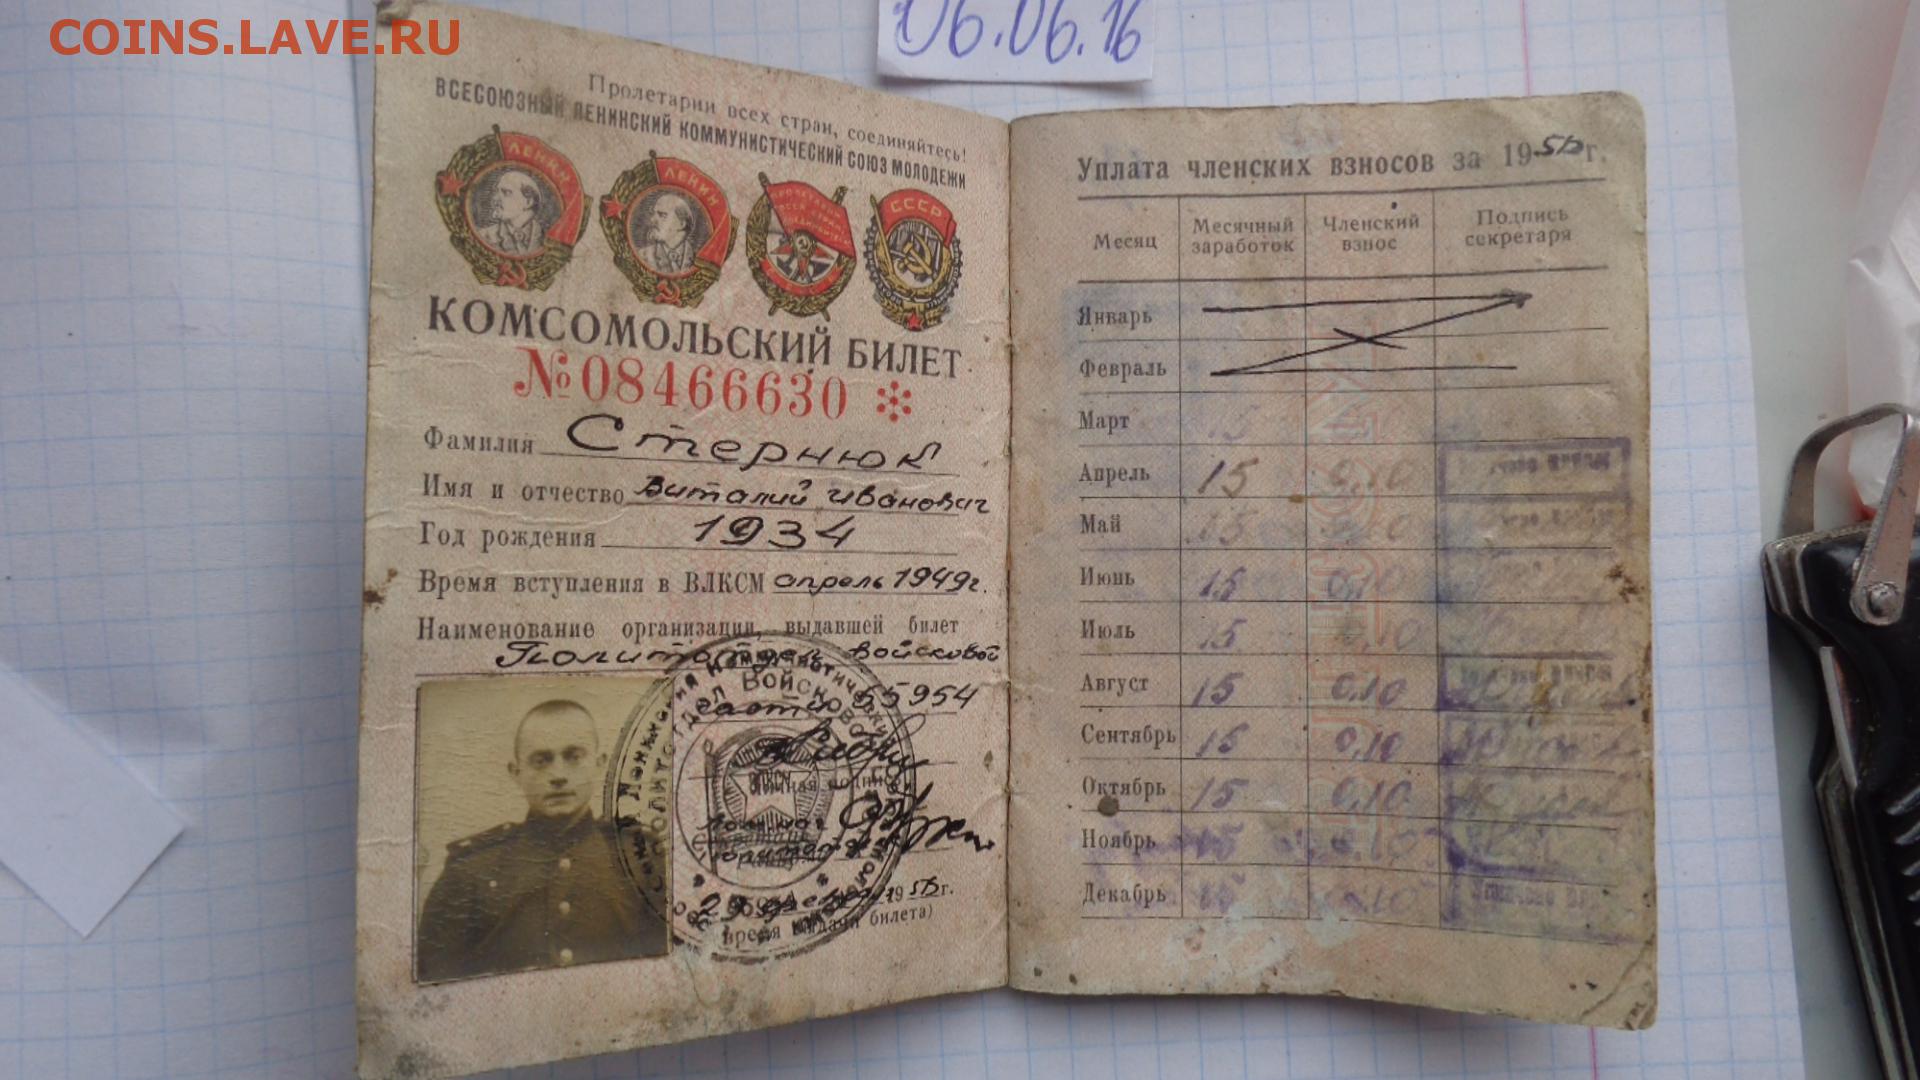 COINS.LAVE.RU
06.06.16
Пролетарии всех стран, соединяйтесь!
ВСЕСОЮЗНЫЙ ЛЕНИНСКИЙ КОММУНИСТИЧЕСКИЙ СОЮЗ МОЛОДЕЖИ
ЛЕНИН
ЛЕНИН
ПРОЛЕТАРИИ ВСЕХ СТРАН СОЕДИНЯЙТЕСЬ
СССР
КОМСОМОЛЬСКИЙ БИЛЕТ
№ 08466630
Фамилия Стернюк
Имя и отчество Виталий Иванович
Год рождения 1934
Время вступления в ВЛКСМ апрель 1949г.
Наименование организации, выдавшей билет
Политотдел войсковой
частью 55954
личная подпись
ВЛКСМ
Политотдел Войсковой
19 г.
время выдачи билета)
Уплата членских взносов за 19 г.
Месяц Месячный заработок Членский взнос Подпись секретаря
Январь
Февраль
Март 15
Апрель 15 0,10
Май 15 0,10
Июнь 15 0,10
Июль 15 0,10
Август 15 0,10
Сентябрь 15 0,10
Октябрь 15 0,10
Ноябрь 15 0,10
Декабрь 15 0,10